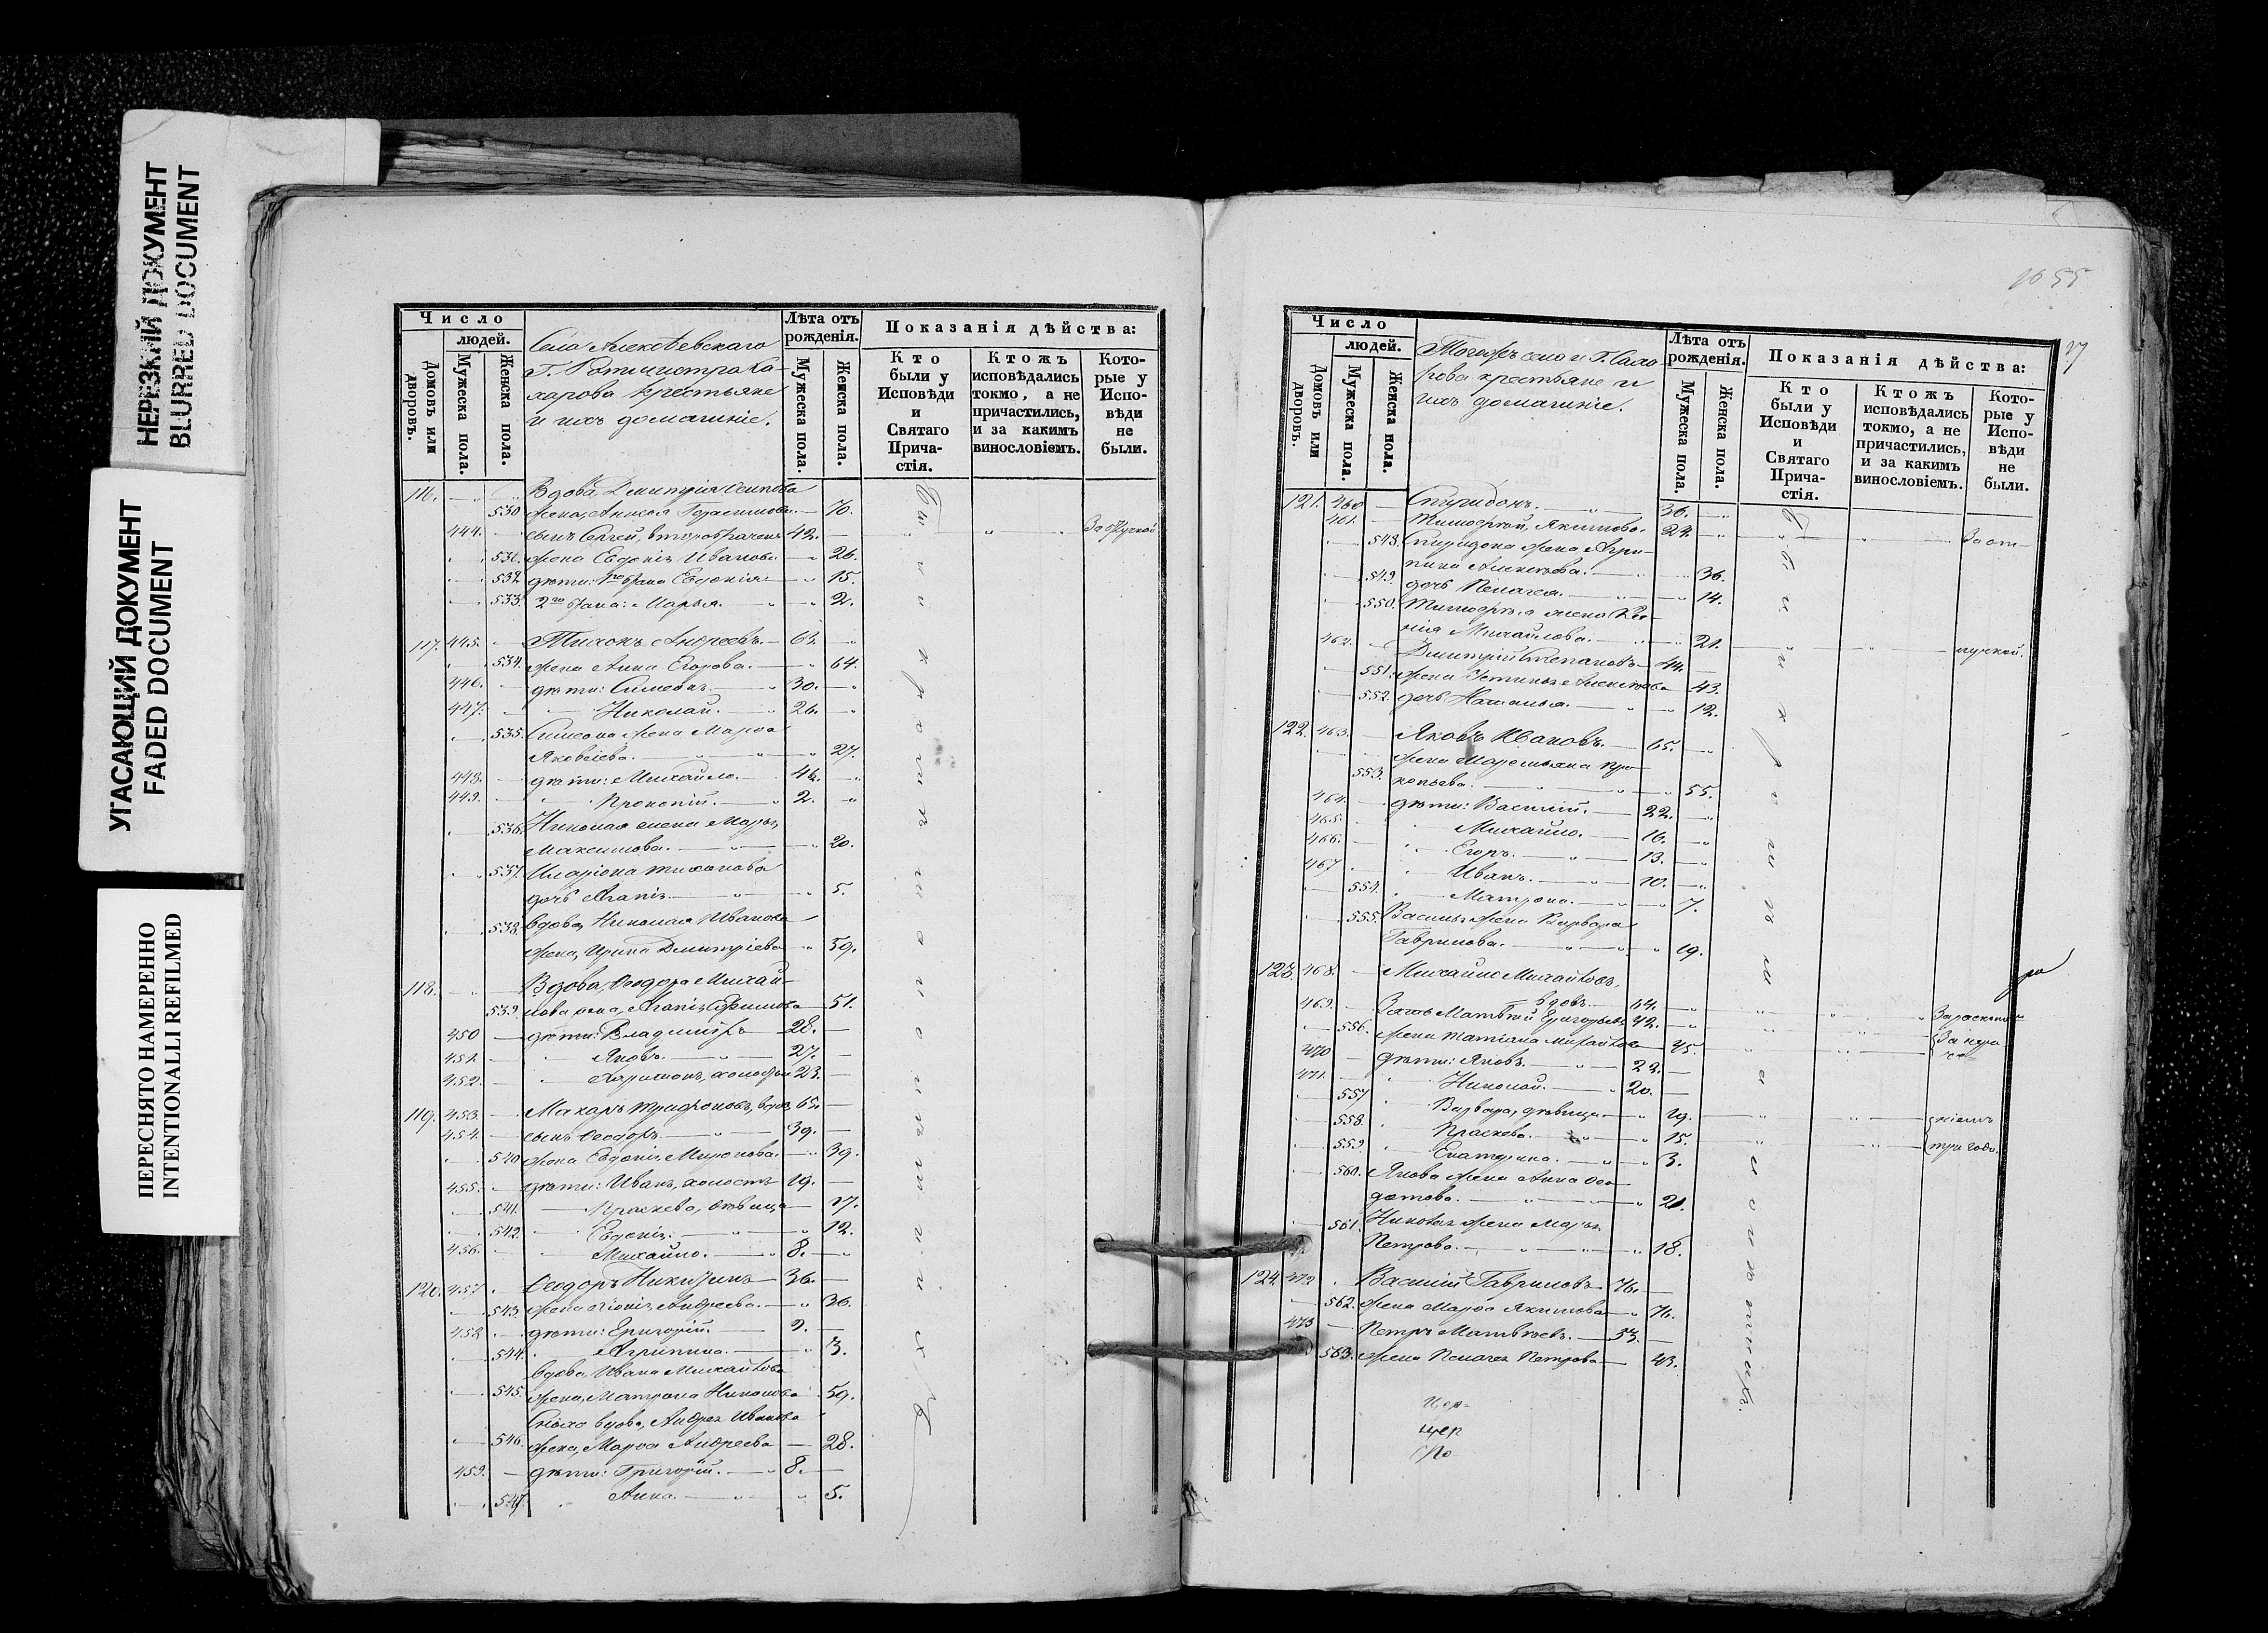 НЕРЕЗКИЙ ДОКУМЕНТ
BLURRED DOCUMENT
УГАСАЮЩИЙ ДОКУМЕНТ
FADED DOCUMENT
ПЕРЕСНЯТО НАМЕРЕННО
INTENTIONALLI REFILMED
Число
людей.
Домовъ или дворовъ.
Мужеска пола.
Женска пола.
Села Алексѣевскаго
Г. Ротмистра Са-
харова крестьяне
и ихъ домашніе.
Лѣта отъ рожденія.
Мужеска пола.
Женска пола.
Показанія дѣйства:
Кто были у Исповѣди и Святаго Прича-стія.
Ктожъ исповѣдались токмо, а не причастились, и за какимъ винословіемъ.
Кото-рые у Испо-вѣди не были.
116. Вдова Дмитрія Осипова
530 жена, Анисья Герасимова 70.
444. сынъ Сергей, второбрачен 42. За отлучкой
531. жена Евдокія Иванова 26.
532. дѣти: 1го брака Евдокія 15.
533. 2го брака: Марья. 2.
117. 445. Тихонъ Андреевъ 63.
534. жена Анна Егорова. 64.
446. дѣти: Симеонъ. 30.
447. Николай. 26.
535. Симеона жена Марѳа
Яковлева. 27.
448. дѣти: Михайло.
449. Прокопій. 2.
536. Николая жена Марья
Максимова. 20.
537. Иларіона Тихонова
дочь Агапія 5.
538. вдова, Николая Иванова
жена, Ирина Дмитріева 59.
118. Вдова, Ѳеодора Михай-
539. лова жена, Агапія Ефимова 51.
450 дѣти: Владиміръ 28.
451. Яковъ. 27.
452. Харитонъ, холостый 23.
119. 453. Макаръ Трифоновъ, вдов. 65.
454. сынъ Ѳеодоръ. 39.
540 жена Евдокія Миронова. 39.
455. дѣти: Иванъ, холостъ 19.
541. Праскева, дѣвица 17.
542. Евдокія. 12.
456. Михайло. 8.
120. 457. Ѳеодоръ Никитинъ 36.
543. жена Ксенія Андреева. 36.
458 дѣти: Григорій. 9.
544. Агрипина. 3.
вдова, Ивана Михайлова
545. жена, Матрона Никонова 59.
Сноха вдова, Андрея Иванова
546. жена, Марѳа Андреева 28.
459. дѣти: Григорій. 8.
547. Анна. 5.
1655
17
Число
людей.
Домовъ или дворовъ.
Мужеска пола.
Женска пола.
Тогожъ села и Г. Саха-
рова крестьяне и
ихъ домашніе.
Лѣта отъ рожденія.
Мужеска пола.
Женска пола.
Показанія дѣйства:
Кто были у Исповѣди и Святаго Прича-стія.
Ктожъ исповѣдались токмо, а не причастились, и за какимъ винословіемъ.
Кото-рые у Испо-вѣди не были.
121. 460 Спиридонъ. 36.
461. Тимофей, Якимовы. 22. За от-
548. Спиридона жена Агри-
пина Алексѣева. 36.
549. дочь Пелагея. 14.
550. Тимофея жена Ксе-
нія Михайлова. 21.
462. Дмитрій Степановъ 44. лучкой.
551. жена Устинья Алексѣева 43.
552. дочь Наталья. 12.
122. 463. Яковъ Ивановъ. 65.
жена Маремьяна Про-
553. копьева. 55.
464. дѣти: Василій. 22.
465. Михайло. 16.
466. Егоръ. 13.
467 Иванъ. 10.
554. Матрона. 7.
555. Василья жена Варвара
Гаврилова. 19.
123. 468. Михайло Михайловъ,
вдовъ. 64.
469. Зять Матвѣй Григорьевъ 42.
556. жена Татіана Михайлова 45.
470 дѣти: Яковъ. 22.
471. Николай. 20.
557 Варвара, дѣвица 19.
558. Праскева. 15.
559 Екатерина. 3.
560. Якова жена Анна Ѳео-
дотова. 21.
561. Николая жена Марья
Петрова. 18.
124. 472 Василій Гавриловъ 76.
562. жена Марѳа Якимова 76.
473 Петръ Матвѣевъ. 53.
563. жена Пелагея Петрова 43.